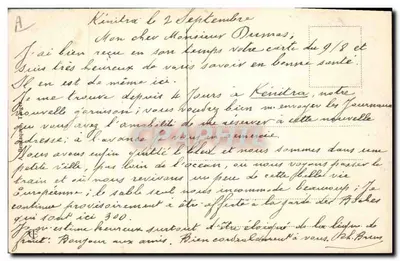 A
Kénitra le 2 Septembre
Mon cher Monsieur Dumas,
J'ai bien reçu en son temps votre carte du 9/8 et
suis très heureux de vous savoir en bonne santé.
Il en est de même ici.
Je me trouve depuis 4 jours à Kénitra, notre
nouvelle garnison; vous voudrez bien m'envoyer les Journaux
que vous avez l'amabilité de me réserver à cette nouvelle
adresse; à l'avance
Nous avons enfin quitté le bled et nous sommes dans une
petite ville, pas loin de l'océan, où nous voyons passer le
train et où nous revivons un peu de cette belle vie
Européenne; le sable seul nous incommode beaucoup; Je
continue provisoirement à être affecté à la garde des Boches
qui sont ici 300.
Je m'estime heureux surtout d'être éloigné de la ligne de
front. Bonjour aux amis. Bien cordialement à vous.